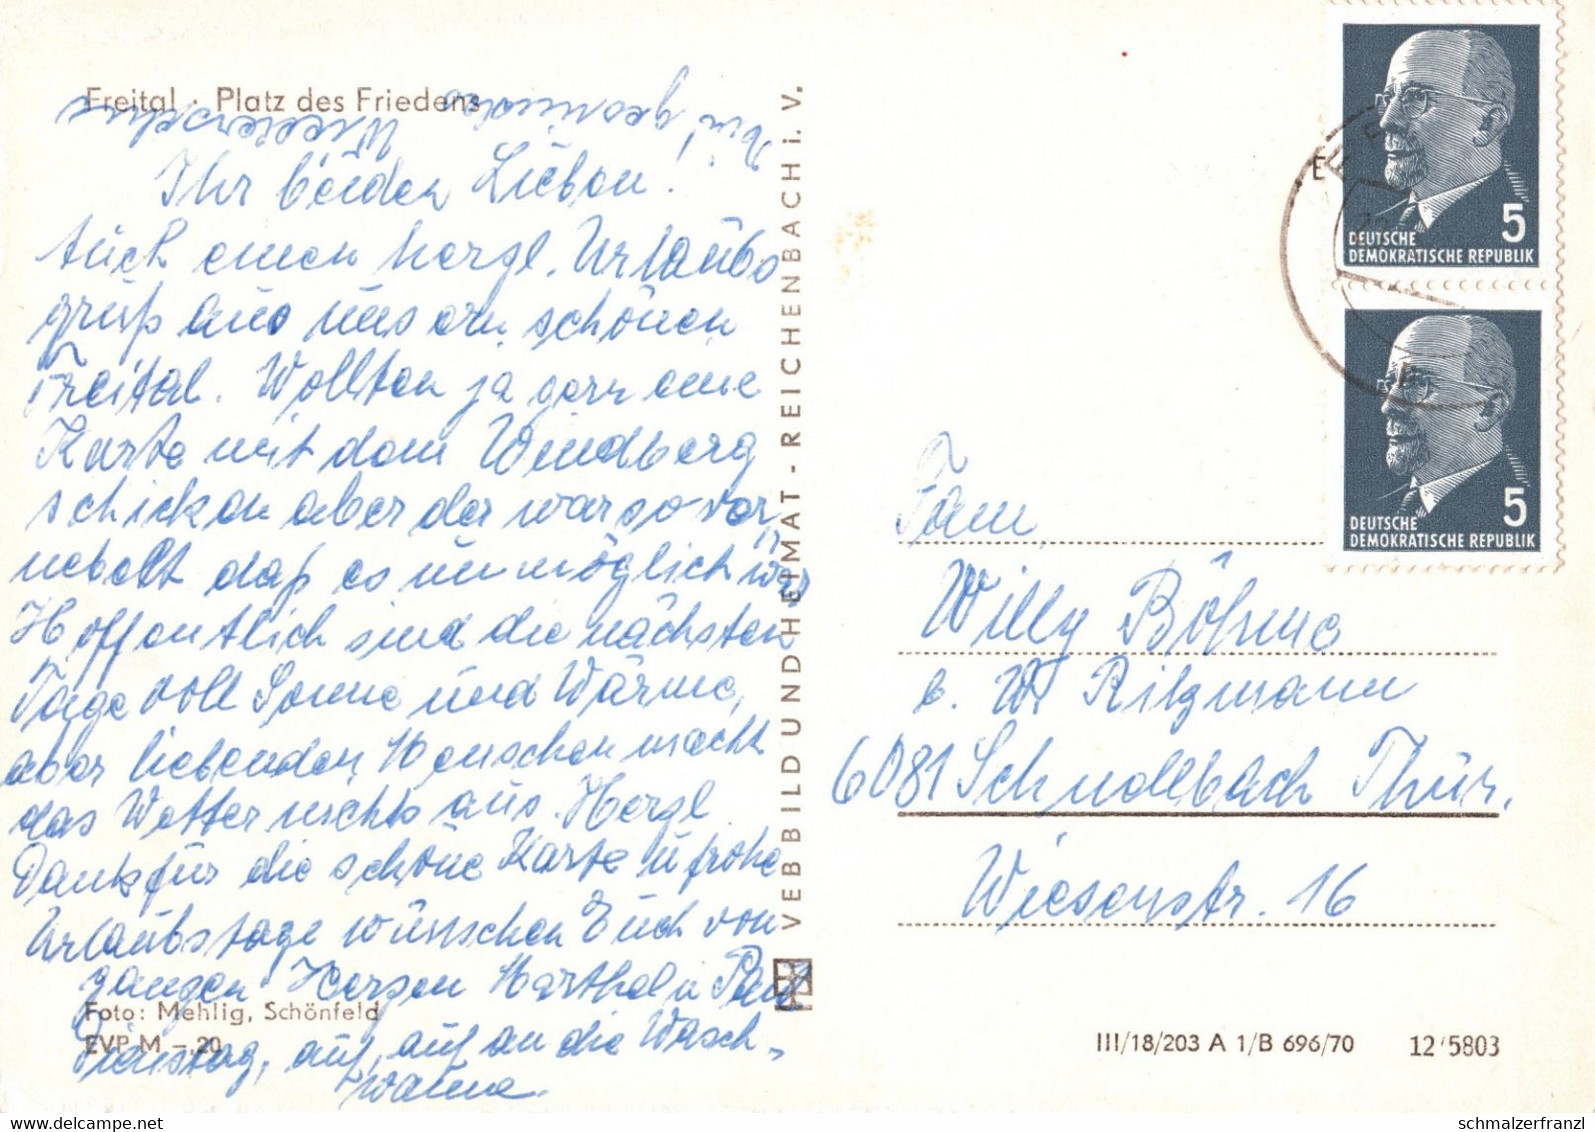 Freital · Platz des Friedens
Ihr beiden Lieben!
Auch einen herzl. Urlaubs
gruß aus uns ern schönen
Freital. Wollten ja gern eine
Karte mit dem Windberg
schicken aber der war so ver,
nebelt daß es unmöglich war
Hoffentlich sind die nächsten
Tage voll Sonne und Wärme,
aber liebenden Menschen macht
das Wetter nichts aus. Herzl.
Dank für die schöne Karte u frohe
Urlaubstage wünschen Euch von
ganzen Herzen Marthel u Paul
Dienstag, auf, auf an die Wasch-
wanne.
Foto: Mehlig, Schönfeld
EVP M -,20
VEB BILD UND HEIMAT - REICHENBACH i. V.
5
DEUTSCHE
DEMOKRATISCHE REPUBLIK
5
DEUTSCHE
DEMOKRATISCHE REPUBLIK
Fam.
Willy Böhme
b. W. Ritzmann
6081 Schnellbach Thür.
Wiesenstr. 16
III/18/203 A 1/B 696/70 12 5803
schmalzerfranzl